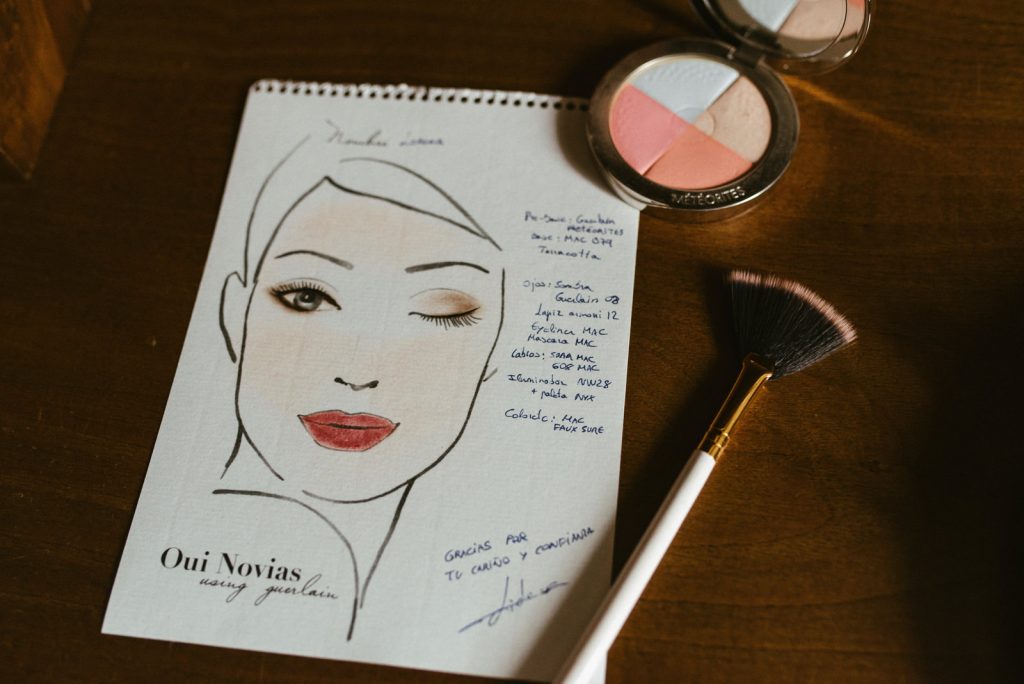 Nombre Lorena
MÉTÉORITES
Pre-base: Guerlain
METEORITES
Base: MAC 079
Terracotta
Ojos: Sombra
Guerlain 08
Lapiz armani 12
Eyeliner MAC
Mascara MAC
Labios: SOAR MAC
608 MAC
Iluminador NW28
+ paleta NYX
Colorete: MAC
FAUX SURE
GRACIAS POR
TU CARIÑO Y CONFIANZA
Oui Novias
using guerlain